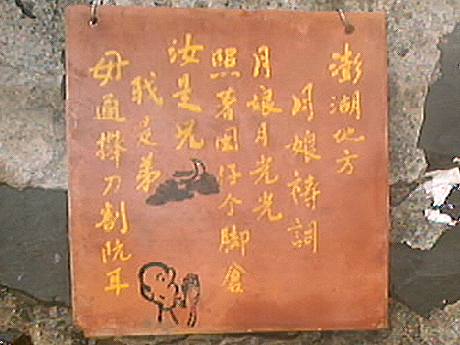 澎湖地方
月娘禱詞
月娘月光光
照著囡仔个脚倉
汝是兄
我是弟
毋通攑刀割阮耳